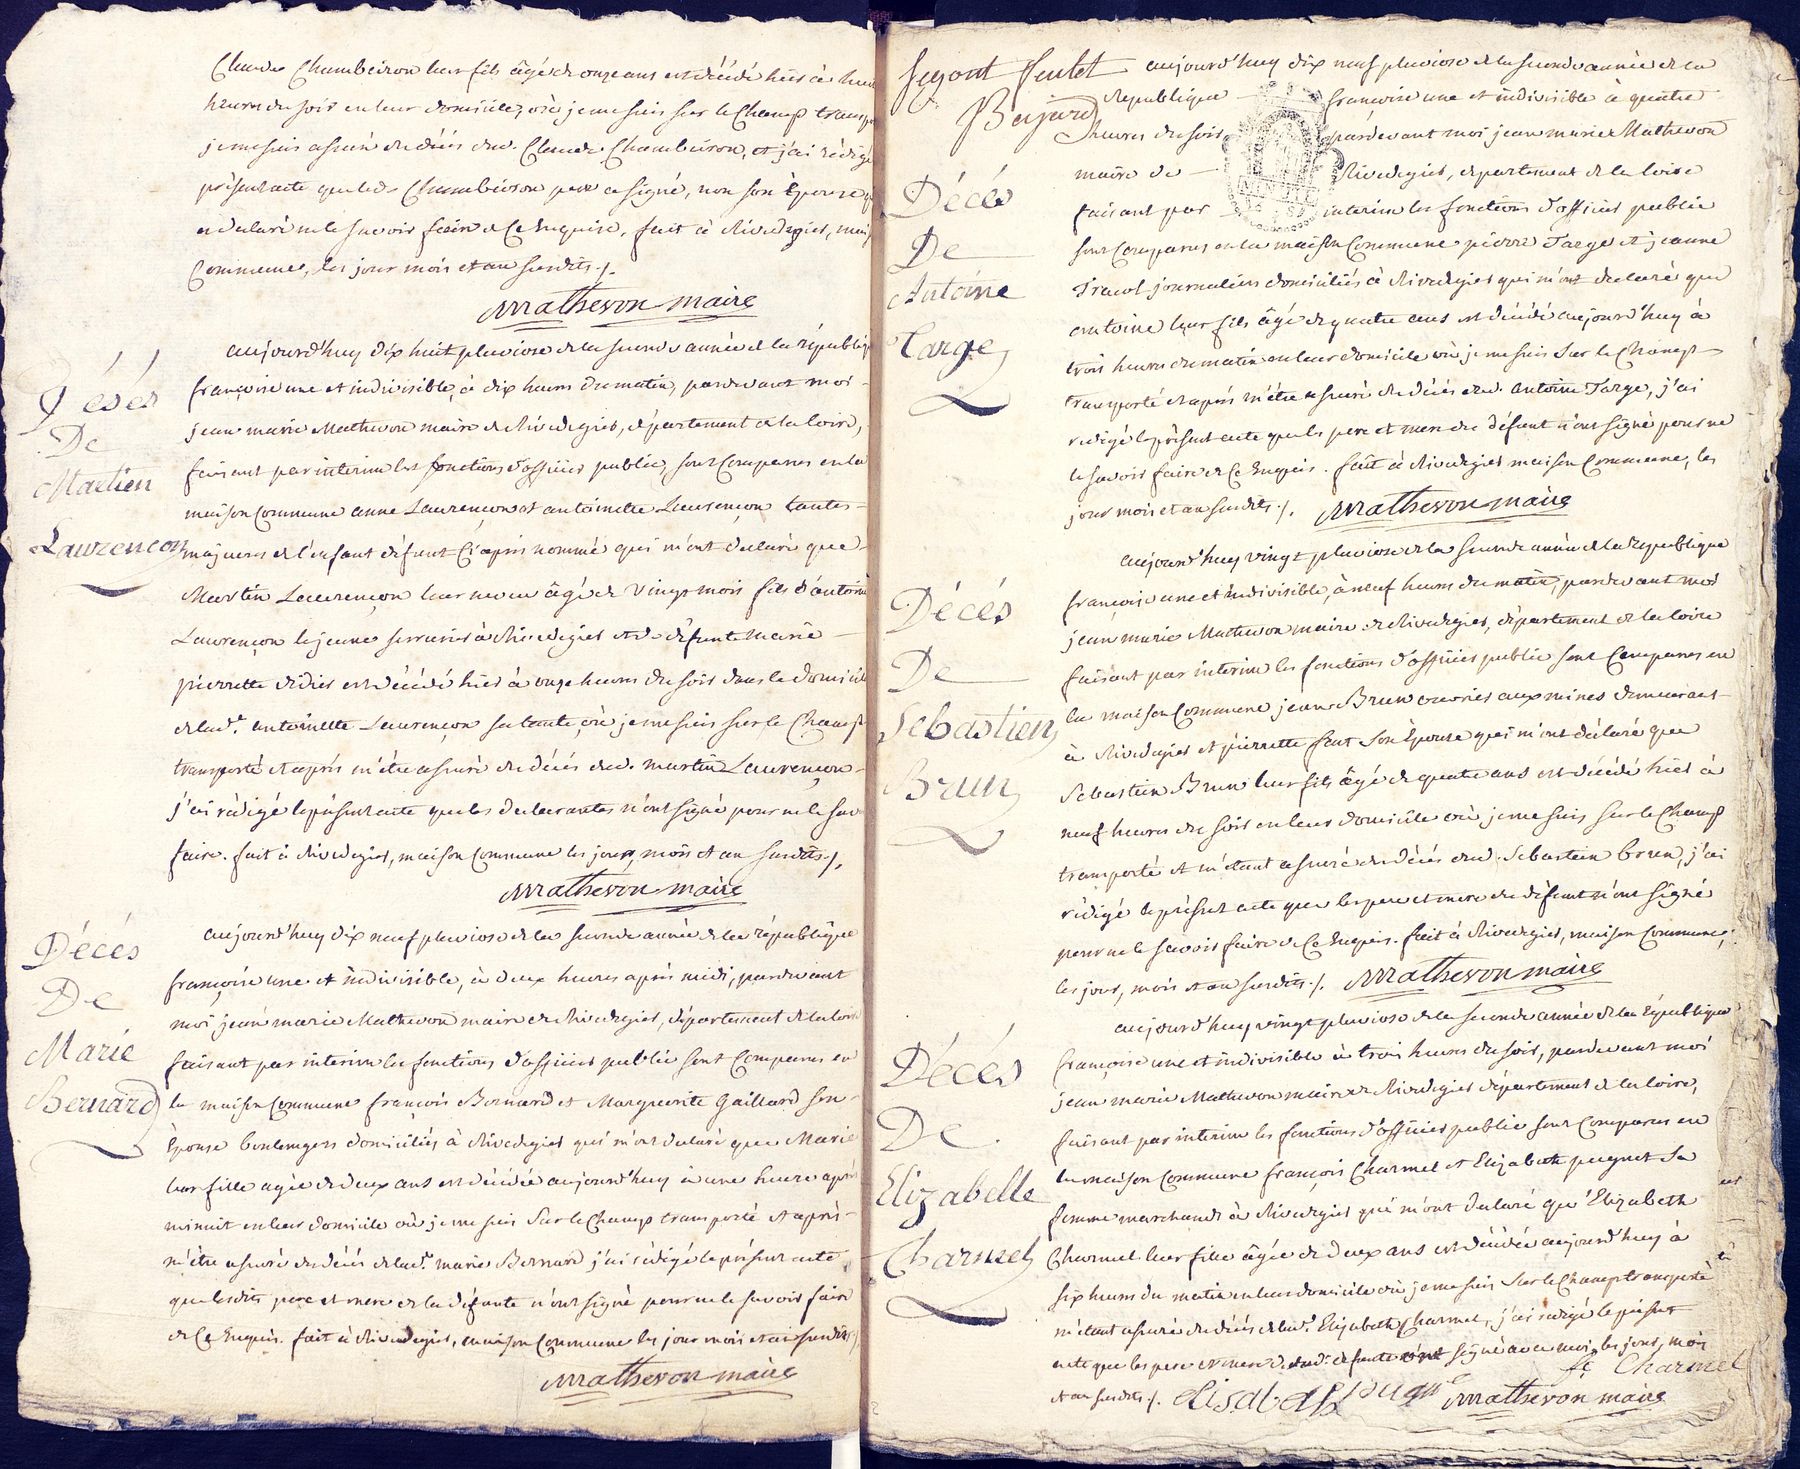 Claude Chambeiron leur fils âgé de onze ans est décédé hier à
heures du soir en leur domicile, où je me suis sur le Champ
je me suis assuré du décès dud. Claude Chambeiron, et j'ai rédigé
présent acte que led. Chambeiron pere a signé, non son Epouse
a déclaré ne le savoir faire de ce Enquise, fait à Rivedegier,
Commune, les jour mois et an susdits ./.
Mathevon maire
Décés
De
Martien
Laurençon
aujourd'huy dix huit pluviose de la seconde année de la républiq
françoise une et indivisible, à dix heures du matin, pardevant moi
jean marie Mathevon maire de Rivedegier, département de la loire,
faisant par interim les fonctions d'officier public, sont Comparues en la
maison Commune anne Laurençon et antoinette Laurençon tantes
majeures de l'enfant défunt Ci après nommé qui m'ont declaré que
Martin Laurençon leur neveu âgé de vingt mois fils d'antoine
Laurençon le jeune serrurier à Rivedegier et de défunte Marie
pierrette didier est décédé hier à onze heures du soir dans le domicile
de lad.e antoinette Laurençon sa tante, où je me suis sur le Champ
transporté et après m'être assuré du décés dud. martin Laurençon
j'ai rédigé le présent acte que les declarantes n'ont signé pour ne le sav
faire. fait à Rivedegier, maison Commune les jour, mois et an susdits ./.
Mathevon maire
Décés
De
Marie
Bernard
aujourd'huy dix neuf pluviose de la seconde année de la république
françoise une et indivisible, à deux heures après midi, pardevant
moi jean marie Mathevon maire de Rivedegier, département de la loire
faisant par interim les fonctions d'officier public sont Comparus en
la maison Commune françois Bernard et Marguerite Gaillard son
Epouse boulengers domiciliés à Rivedegier qui m'ont declaré que Marie
leur fille agée de deux ans est décédée aujourd'huy à une heure après
minuit en leur domicile où je me suis sur le Champ transporté et après
m'être assuré du décés de lad.e marie Bernard j'ai rédigé le présent acte
que lesdits pere et mere de la défunte n'ont signé pour ne le savoir faire
de ce Enquis. fait à Rivedegier, maison Commune les jour mois et an susdits ./.
Mathevon maire
Bajard
Décés
De
Antoine
Targe
aujourd'huy dix neuf pluviose de la seconde année de la
republique françoise une et indivisible à quatre
heures du soir pardevant moi jean marie Mathevon
maire de Rivedegier, departement de la loire
faisant par interim les fonctions d'officier public
sont Comparus en la maison Commune pierre Targe et jeanne
journaliers domiciliés à Rivedegier qui m'ont declaré que
antoine leur fils âgé de quatre ans est décédé aujourd'huy à
trois heures du matin en leur domicile où je me suis sur le Champ
transporté et après m'être assuré du décés dud. antoine Targe, j'ai
redigé le présent acte que les pere et mere du défunt n'ont signé pour ne
le savoir faire de Ce Enquis. fait à Rivedegier maison Commune, les
jour mois et an susdits ./. Mathevon maire
Décés
De
Sebastien
Brun
aujourd'huy vingt pluviose de la seconde année de la republique
françoise une et indivisible, à neuf heures du matin, pardevant moi
jean marie Mathevon maire de Rivedegier, département de la loire
faisant par interim les fonctions d'officier public sont Comparus en
la maison Commune jean Brun ouvrier aux mines demeurant
à Rivedegier et pierrette font son Epouse qui m'ont déclaré que
Sebastien Brun leur fils âgé de quatre ans est décédé hier à
neuf heures du soir en leur domicile où je me suis sur le Champ
transporté et m'étant assuré du décés dud. Sebastien brun, j'ai
rédigé le présent acte que les pere et mere du défunt n'ont signé
pour ne le savoir faire de Ce Enquis. fait à Rivedegier, maison Commune,
les jour, mois et an susdits ./. Mathevon maire
Décés
De
Elizabelle
Charmel
aujourd'huy vingt pluviose de la seconde année de la République
françoise une et indivisible à trois heures du soir, pardevant moi
jean marie Mathevon maire de Rivedegier département de la loire,
faisant par interim les fonctions d'officier public sont Comparus en
la maison Commune françois Charmel et Elizabeth pugnet sa
femme marchands à Rivedegier qui m'ont declaré qu'Elizabeth
Charmel leur fille âgée de deux ans est décédée aujourd'huy à
six heures du matin en leur domicile où je me suis sur le Champ transporté
m'étant assuré du décés de lad.e Elizabeth Charmel, j'ai redigé le présent
acte que les pere et mere de lad. défunte ont signé avec moi les jour, mois
et an susdits ./. Elisabeth pugnet Mathevon maire
fs Charmel